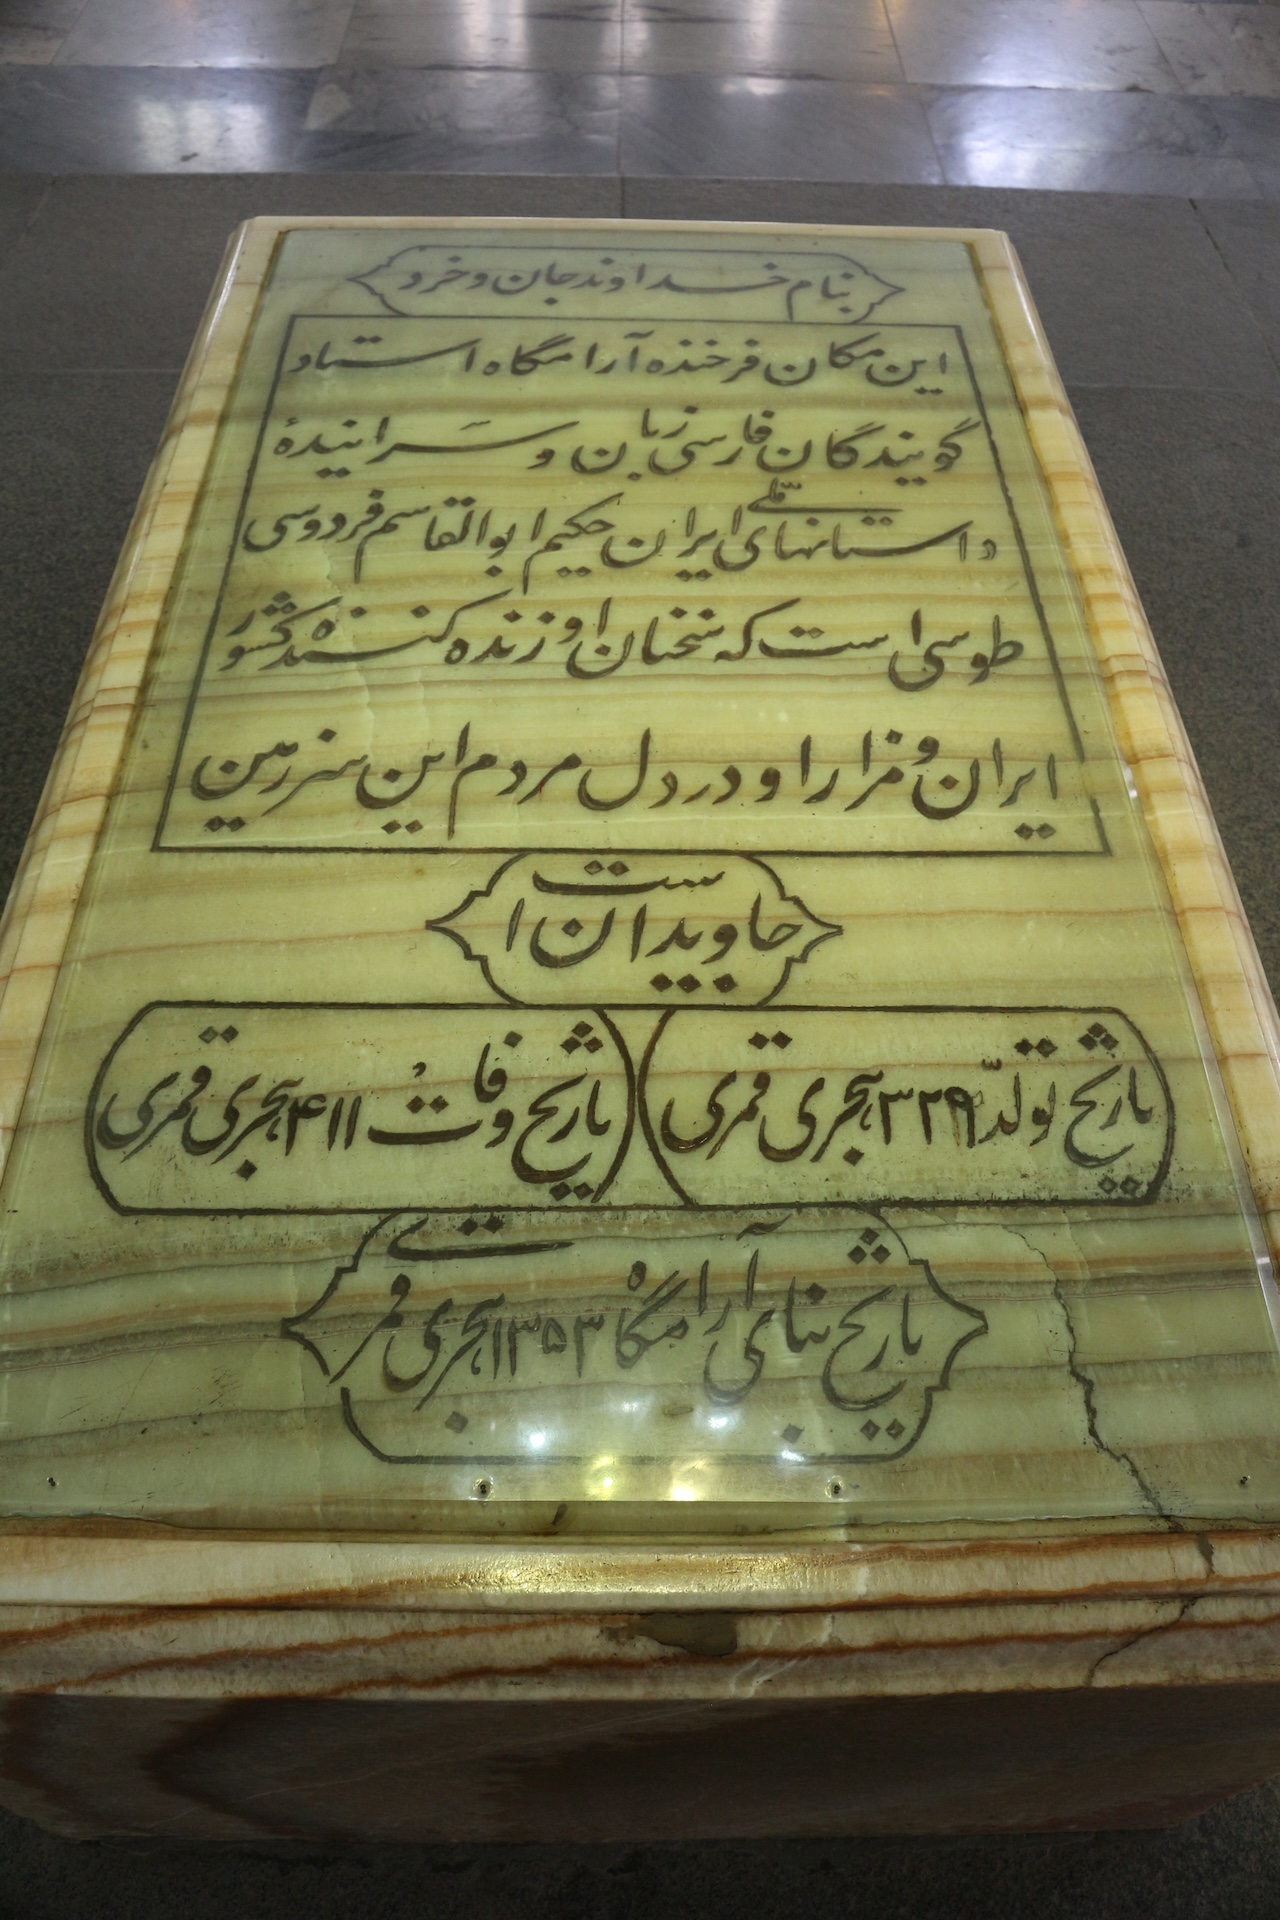 بنام خداوند جان و خرد
این مکان فرخنده آرامگاه استاد
گویندگان فارسی زبان و سَراینیدهٔ
داستانهای ملّی ایران حکیم ابوالقاسم فردوسی
طوسی است که سخنان او زنده کننده کشور
ایران و مزار او در دل مردم این سرزمین
جاویدان است
تاریخ تولّد ۳۲۹ هجری قمری
تاریخ وفات ۴۱۱ هجری قمری
تاریخ بنای آرامگاه ۱۳۵۳ هجری قمری